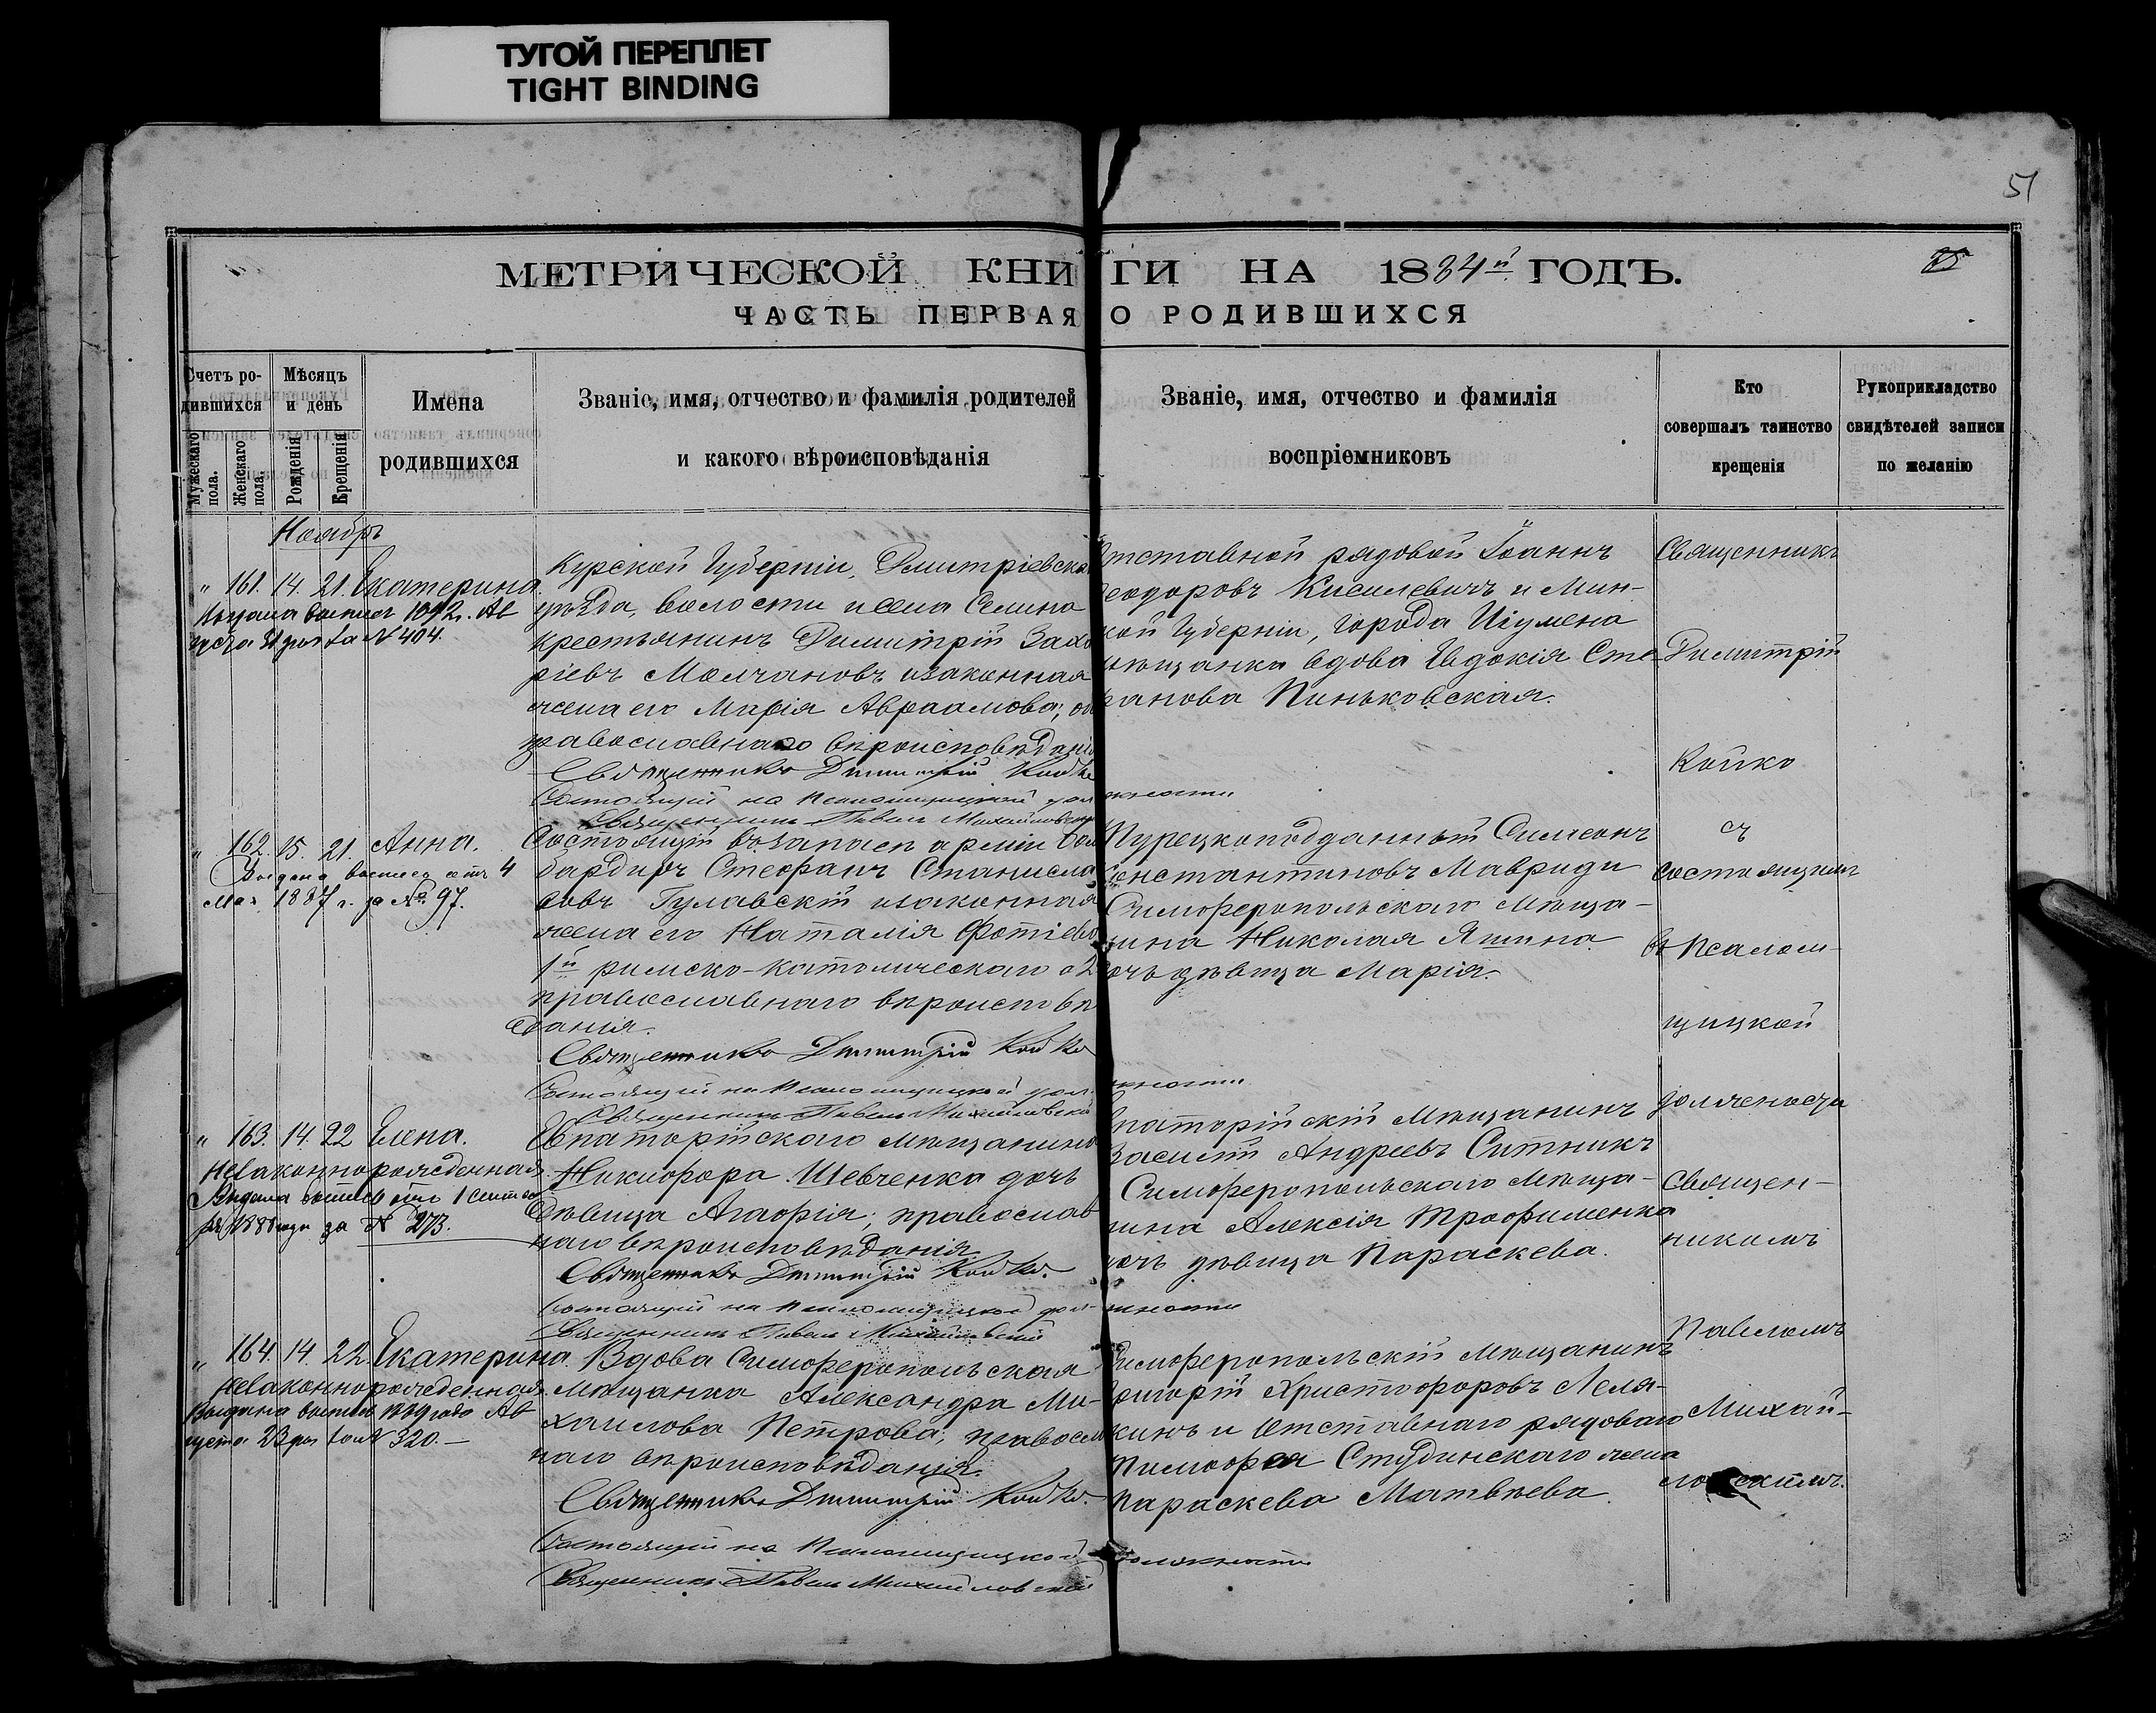 ТУГОЙ ПЕРЕПЛЕТ
TIGHT BINDING
51
МЕТРИЧЕСКОЙ КНИГИ НА 1884й ГОДЪ.
85
ЧАСТЬ ПЕРВАЯ О РОДИВШИХСЯ
Счетъ родившихся
Мужескаго пола.
Женскаго пола.
Мѣсяцъ и день
Рожденія
Крещенія
Имена
родившихся
Званіе, имя, отчество и фамилія родителей
и какого вѣроисповѣданія
Званіе, имя, отчество и фамилія
воспріемниковъ
Кто
совершалъ таинство
крещенія
Рукоприкладство
свидѣтелей записи
по желанію
Ноябрь
" 161. 14. 21. Екатерина.
Августа 31 дня за № 404.
Курской Губерніи, Дмитріевска
уѣзда, волости и села Селина
крестьянинъ Димитрій Заха
ріевъ Молчановъ и законная
жена его Марія Авраамова; об
православнаго вѣроисповѣданія
Священникъ Димитрій Койко
Состоящій на Псаломщицкой должности
Священникъ Павелъ Михайловскій
Отставной рядовой Іоаннъ
Ѳеодоровъ Кисилевичъ и Мин-
ской Губерніи, города Игумена
мѣщанка вдова Евдокія Сте-
фанова Пиньковская.
" 162. 15. 21. Анна.
Выдана выпись отъ 4
Мая 1887 г. за № 97.
Состоящій въ запасѣ арміи бом
бардиръ Стефанъ Станисла
вовъ Гулавскій и законная
жена его Наталія Фотіева
1й римско-католическаго а 2
православнаго вѣроисповѣ
данія.
Священникъ Димитрій Койко
Состоящій на Псаломщицкой должности
Священникъ Павелъ Михайловскій
Турецкоподданный Симеонъ
Константиновъ Мавриди
Симферопольскаго Мѣща-
нина Николая Яшина
дочь дѣвица Марія.
" 163. 14. 22 Елена.
Незаконнорожденная.
Выдана выпись отъ 1 Сентяб
ря 188 года за № 273.
Евпаторійскаго мѣщанина
Никифора Шевченка дочь
дѣвица Агафія; православ
наго вѣроисповѣданія.
Священникъ Димитрій Койко.
Состоящій на Псаломщицкой должности
Священникъ Павелъ Михайловскій
Евпаторійскій Мѣщанинъ
Василій Андреевъ Ситникъ
Симферопольскаго Мѣща-
нина Алексія Трофименка
дочь дѣвица Параскева.
" 164. 14. 22. Екатерина.
Незаконнорожденная.
Выдана выпись 1889 года Ав
густа 23 дня за № 320.—
Вдова Симферопольская
Мѣщанка Александра Ми-
хаилова Петрова; правосла
наго вѣроисповѣданія.
Священникъ Димитрій Койко.
Состоящій на Псаломщицкой должности
Священникъ Павелъ Михайловскій
Симферопольскій мѣщанинъ
Григорій Христофоровъ Леля-
кинъ и Отставнаго рядоваго
Тимофея Студинскаго жена
Параскева Матвѣева.
Священникъ
Димитрій
Койко
съ
состоящимъ
въ Псалом-
щицкой
должности
Священ-
никомъ
Павломъ
Михай-
ловскимъ.